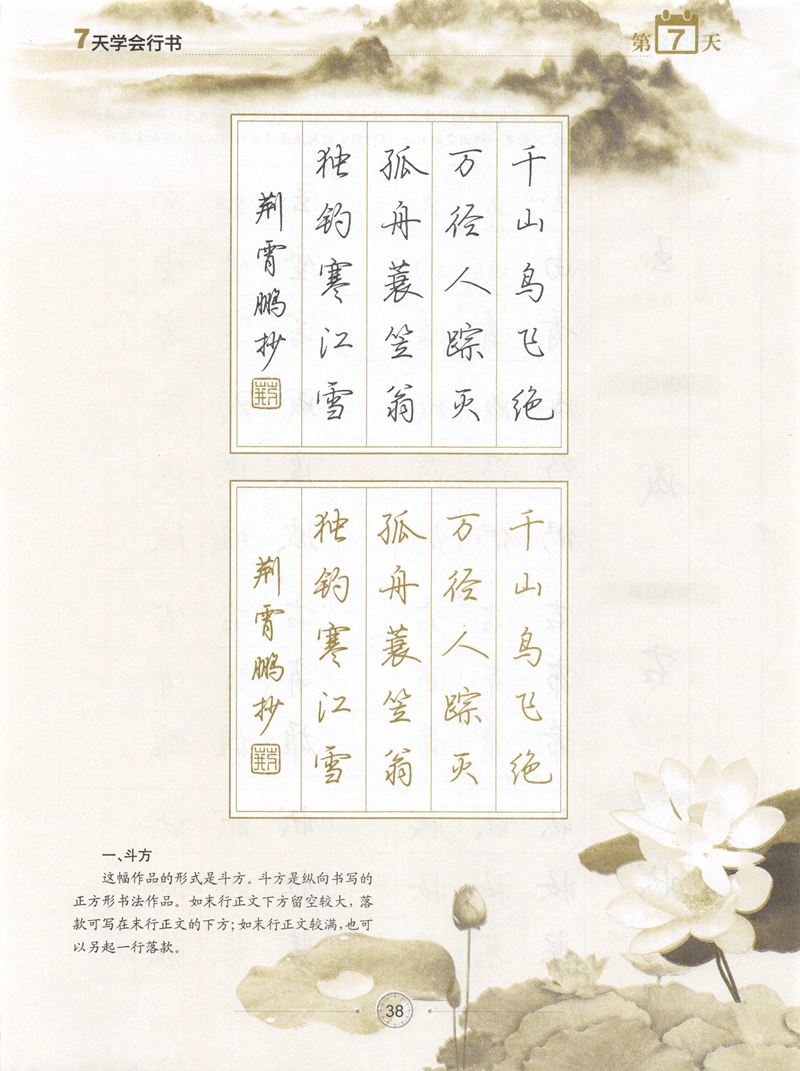 7天学会行书
第7天
千山鸟飞绝
万径人踪灭
孤舟蓑笠翁
独钓寒江雪
荆霄鹏抄
千山鸟飞绝
万径人踪灭
孤舟蓑笠翁
独钓寒江雪
荆霄鹏抄
一、斗方
这幅作品的形式是斗方。斗方是纵向书写的
正方形书法作品。如末行正文下方留空较大，落
款可写在末行正文的下方；如末行正文较满，也可
以另起一行落款。
38